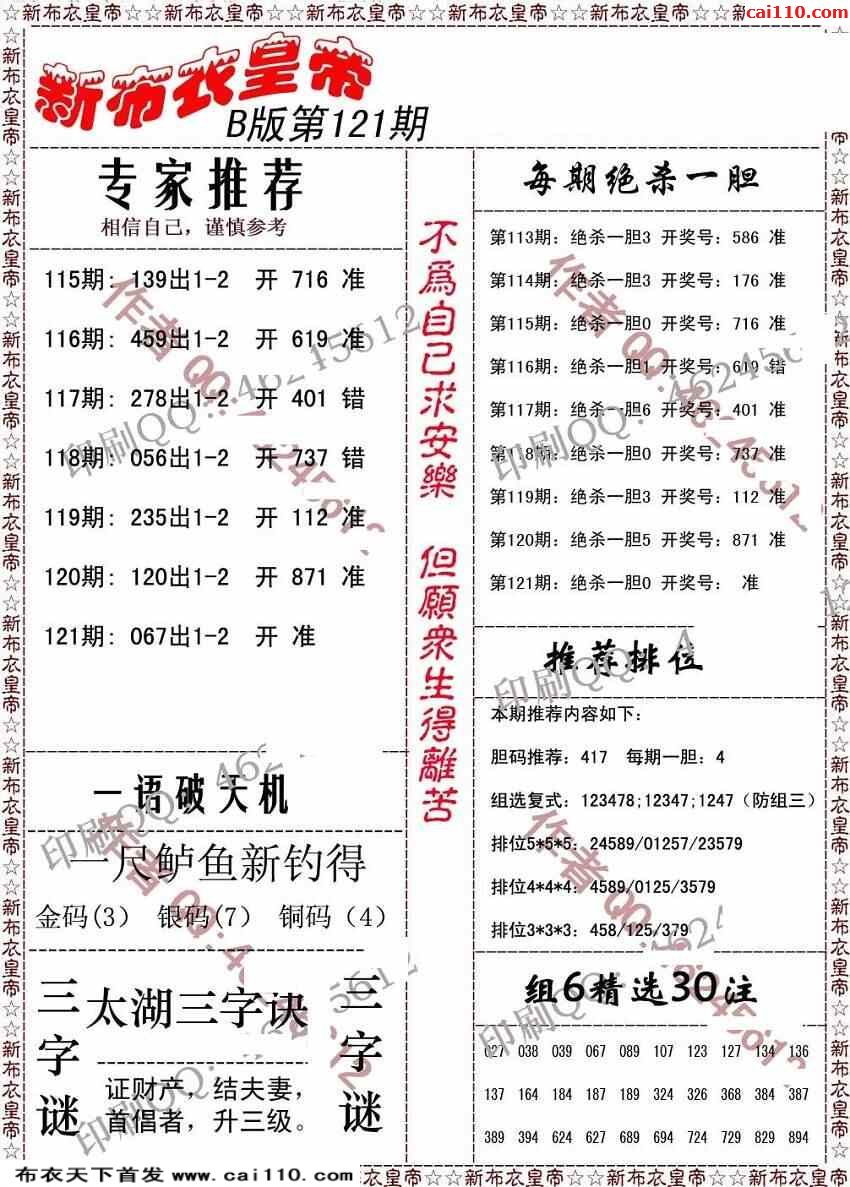 ☆☆新布衣皇帝☆☆新布衣皇帝☆☆新布衣皇帝☆☆新布衣皇帝☆☆新布衣皇帝☆☆
cai110.com
新布衣皇帝
B版第121期
专家推荐
相信自己，谨慎参考
115期: 139出1-2 开 716 准
116期: 459出1-2 开 619 准
117期: 278出1-2 开 401 错
118期: 056出1-2 开 737 错
119期: 235出1-2 开 112 准
120期: 120出1-2 开 871 准
121期: 067出1-2 开 准
一语破天机
一尺鲈鱼新钓得
金码(3) 银码(7) 铜码（4）
三字谜
太湖三字诀
证财产，结夫妻，
首倡者，升三级。
三字谜
不為自己求安樂 但願衆生得離苦
每期绝杀一胆
第113期：绝杀一胆3 开奖号：586 准
第114期：绝杀一胆3 开奖号：176 准
第115期：绝杀一胆0 开奖号：716 准
第116期：绝杀一胆1 开奖号：619 错
第117期：绝杀一胆6 开奖号：401 准
第118期：绝杀一胆0 开奖号：737 准
第119期：绝杀一胆3 开奖号：112 准
第120期：绝杀一胆5 开奖号：871 准
第121期：绝杀一胆0 开奖号： 准
推荐排位
本期推荐内容如下：
胆码推荐：417 每期一胆：4
组选复式：123478;12347;1247（防组三）
排位5*5*5：24589/01257/23579
排位4*4*4：4589/0125/3579
排位3*3*3：458/125/379
组6精选30注
027 038 039 067 089 107 123 127 134 136
137 164 184 187 189 324 326 368 384 387
389 394 624 627 689 694 724 729 829 894
布衣天下首发 www.cai110.com
衣皇帝☆☆新布衣皇帝☆☆新布衣皇帝☆☆新布衣皇帝☆☆